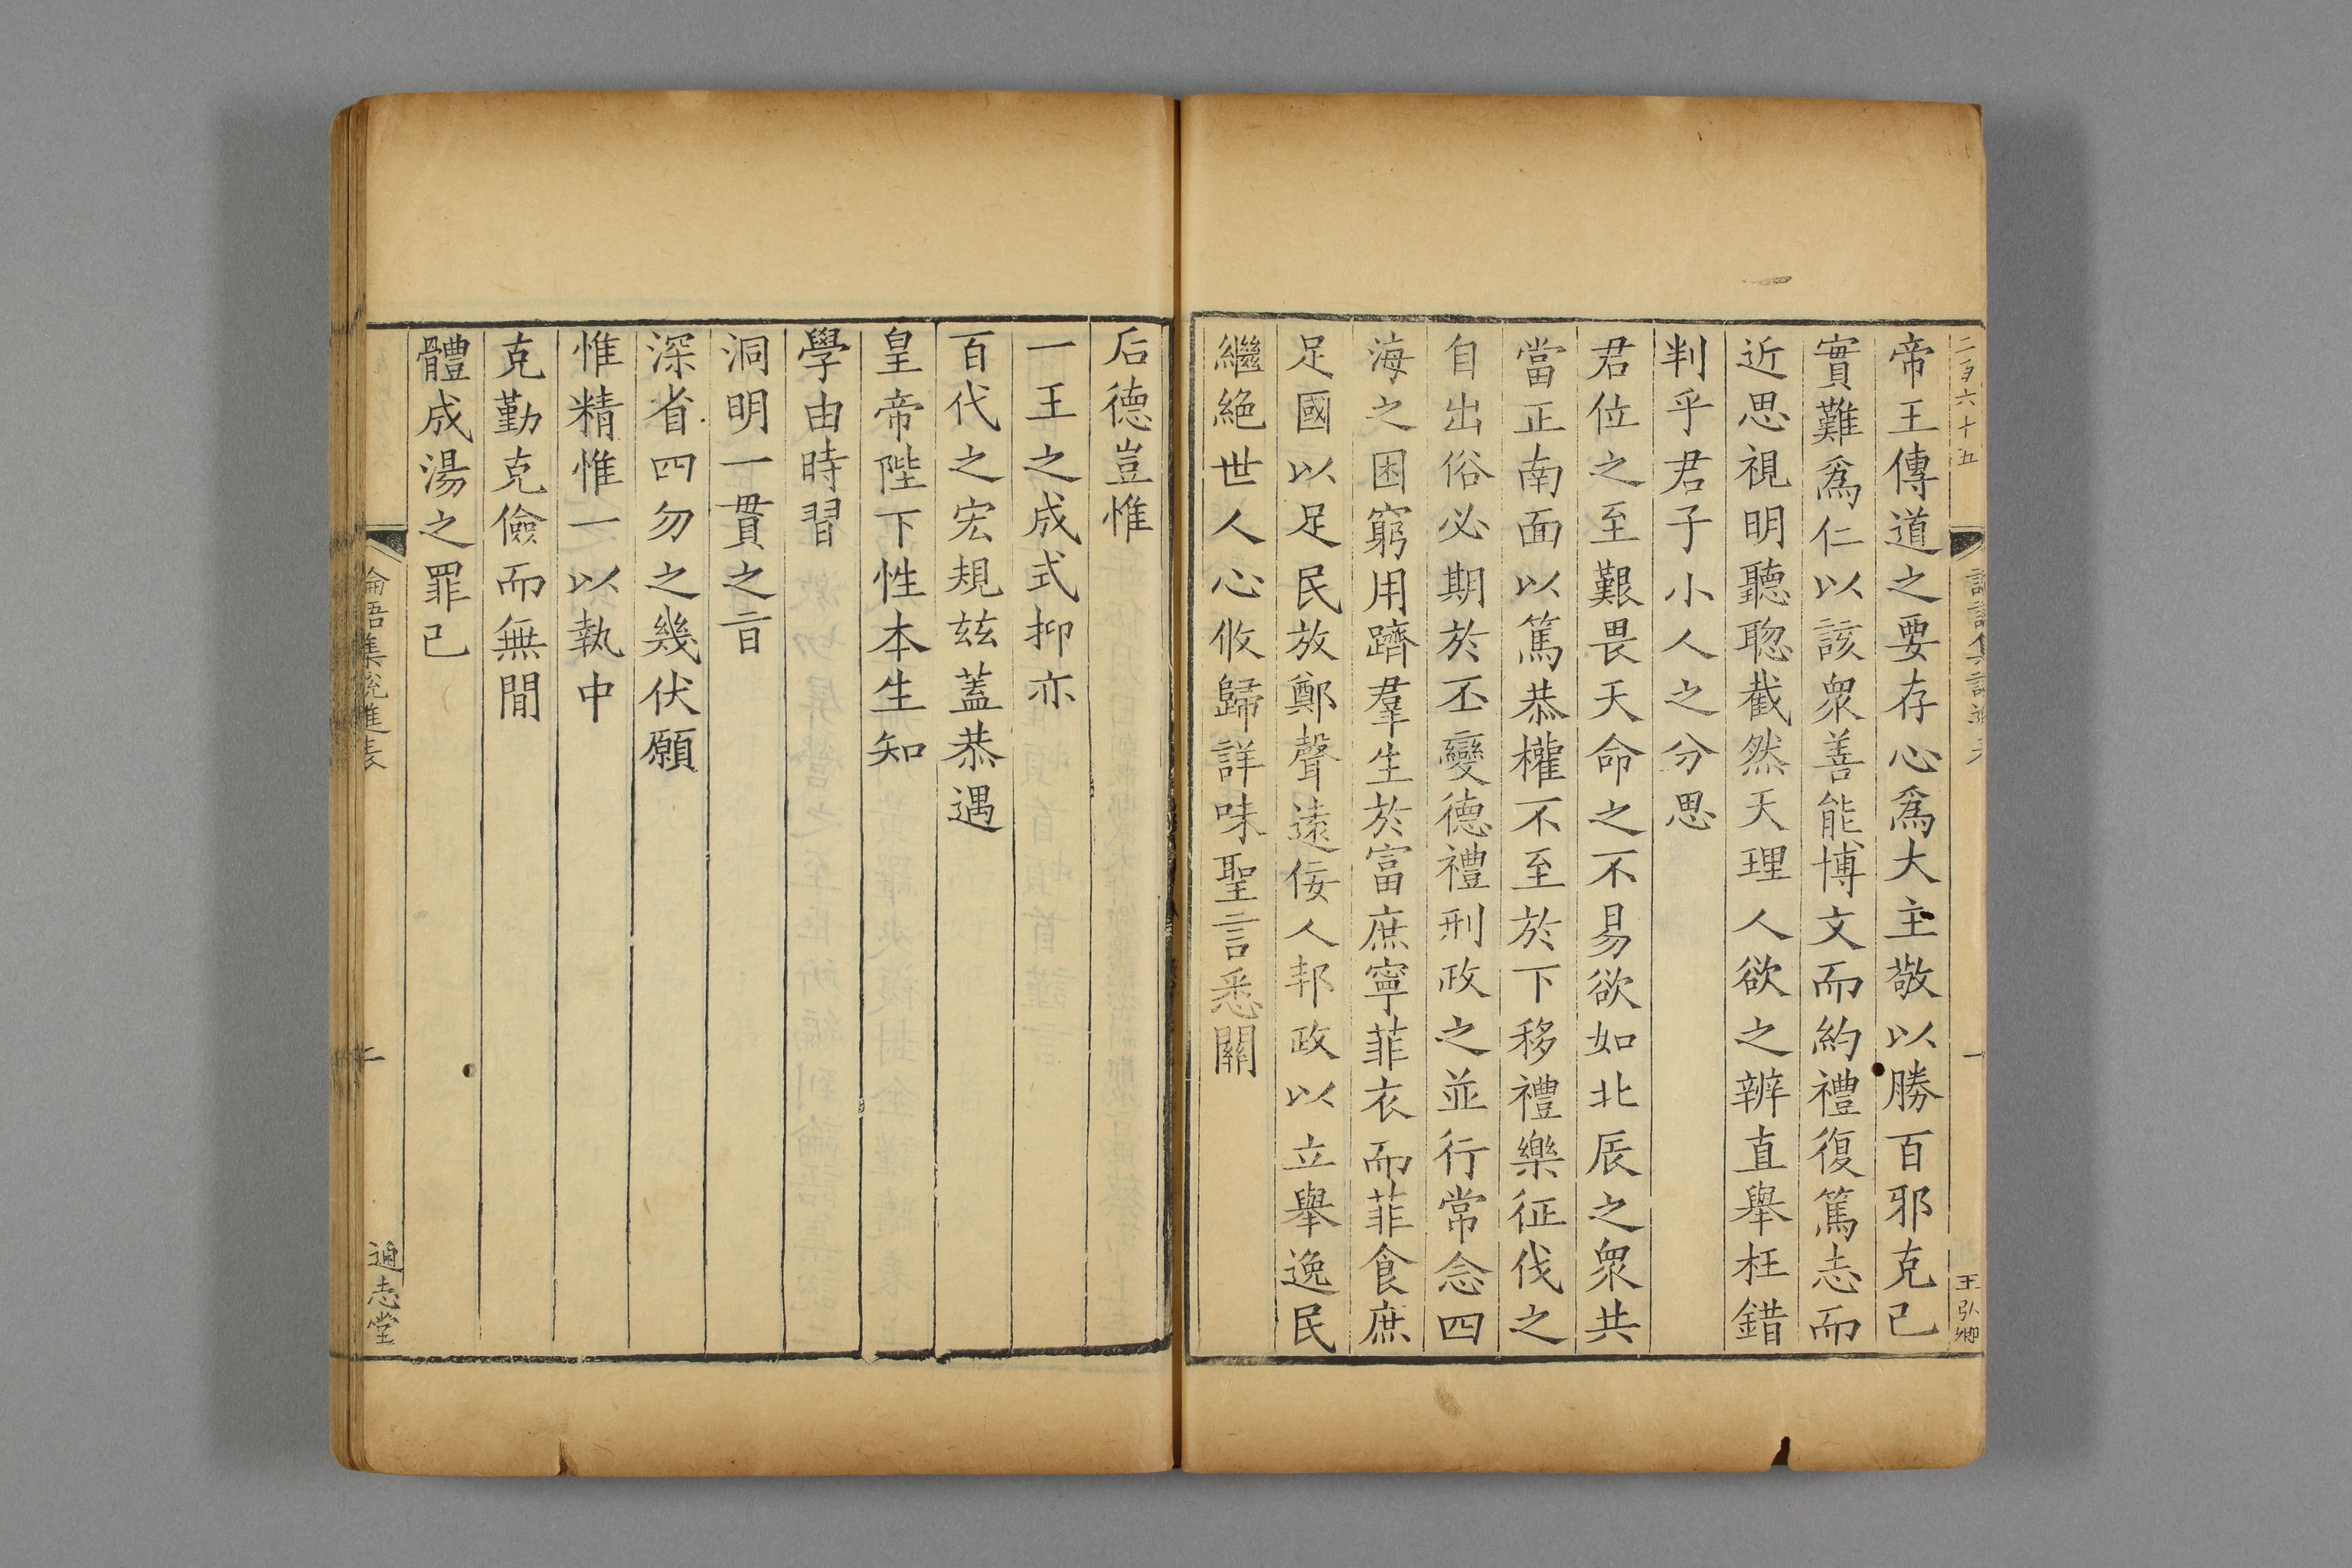 二百六十五
一
王弘卿
帝王傳道之要存心爲大主敬以勝百邪克己
實難爲仁以該衆善能博文而約禮復篤志而
近思視明聽聦截然天理人欲之辨直舉枉錯
判乎君子小人之分思
君位之至艱畏天命之不易欲如北辰之衆共
當正南面以篤恭權不至於下移禮樂征伐之
自出俗必期於丕變德禮刑政之並行常念四
海之困窮用躋羣生於富庶寧菲衣而菲食庶
足國以足民放鄭聲遠佞人邦政以立舉逸民
繼絕世人心攸歸詳味聖言悉關
后德豈惟
一王之成式抑亦
百代之宏規茲蓋恭遇
皇帝陛下性本生知
學由時習
洞明一貫之旨
深省四勿之幾伏願
惟精惟一以執中
克勤克儉而無間
體成湯之罪己
論語集說進表
二
通志堂